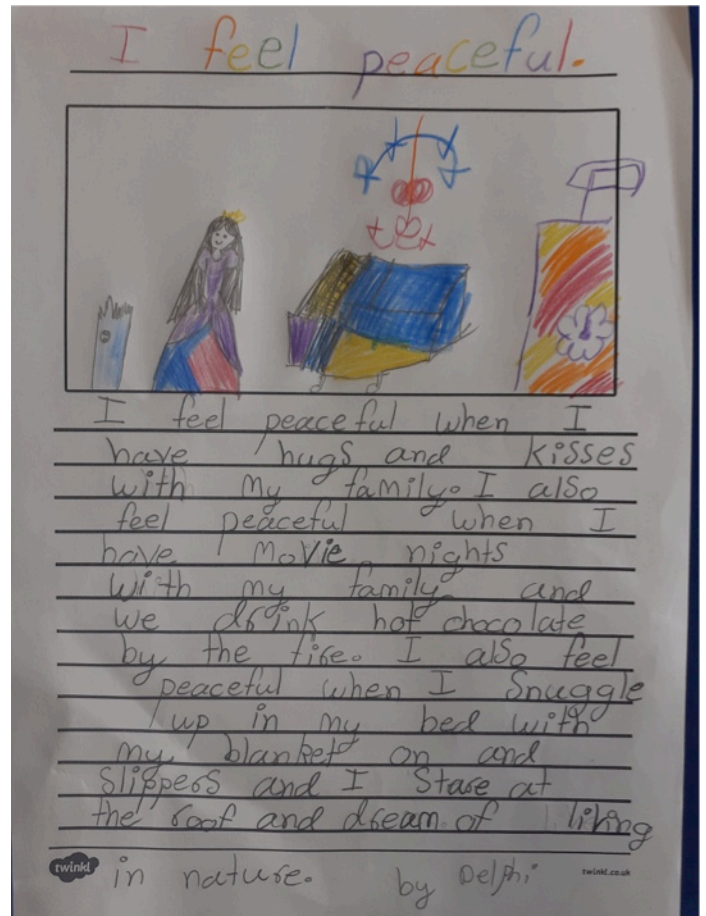 I feel peaceful.
I feel peaceful when I
have hugs and kisses
with my family. I also
feel peaceful when I
have movie nights
with my family and
we drink hot chocolate
by the fire. I also feel
peaceful when I snuggle
up in my bed with
my blanket on and
slippers and I stare at
the roof and dream of living
in nature.
by Delphi
twinkl
twinkl.co.uk